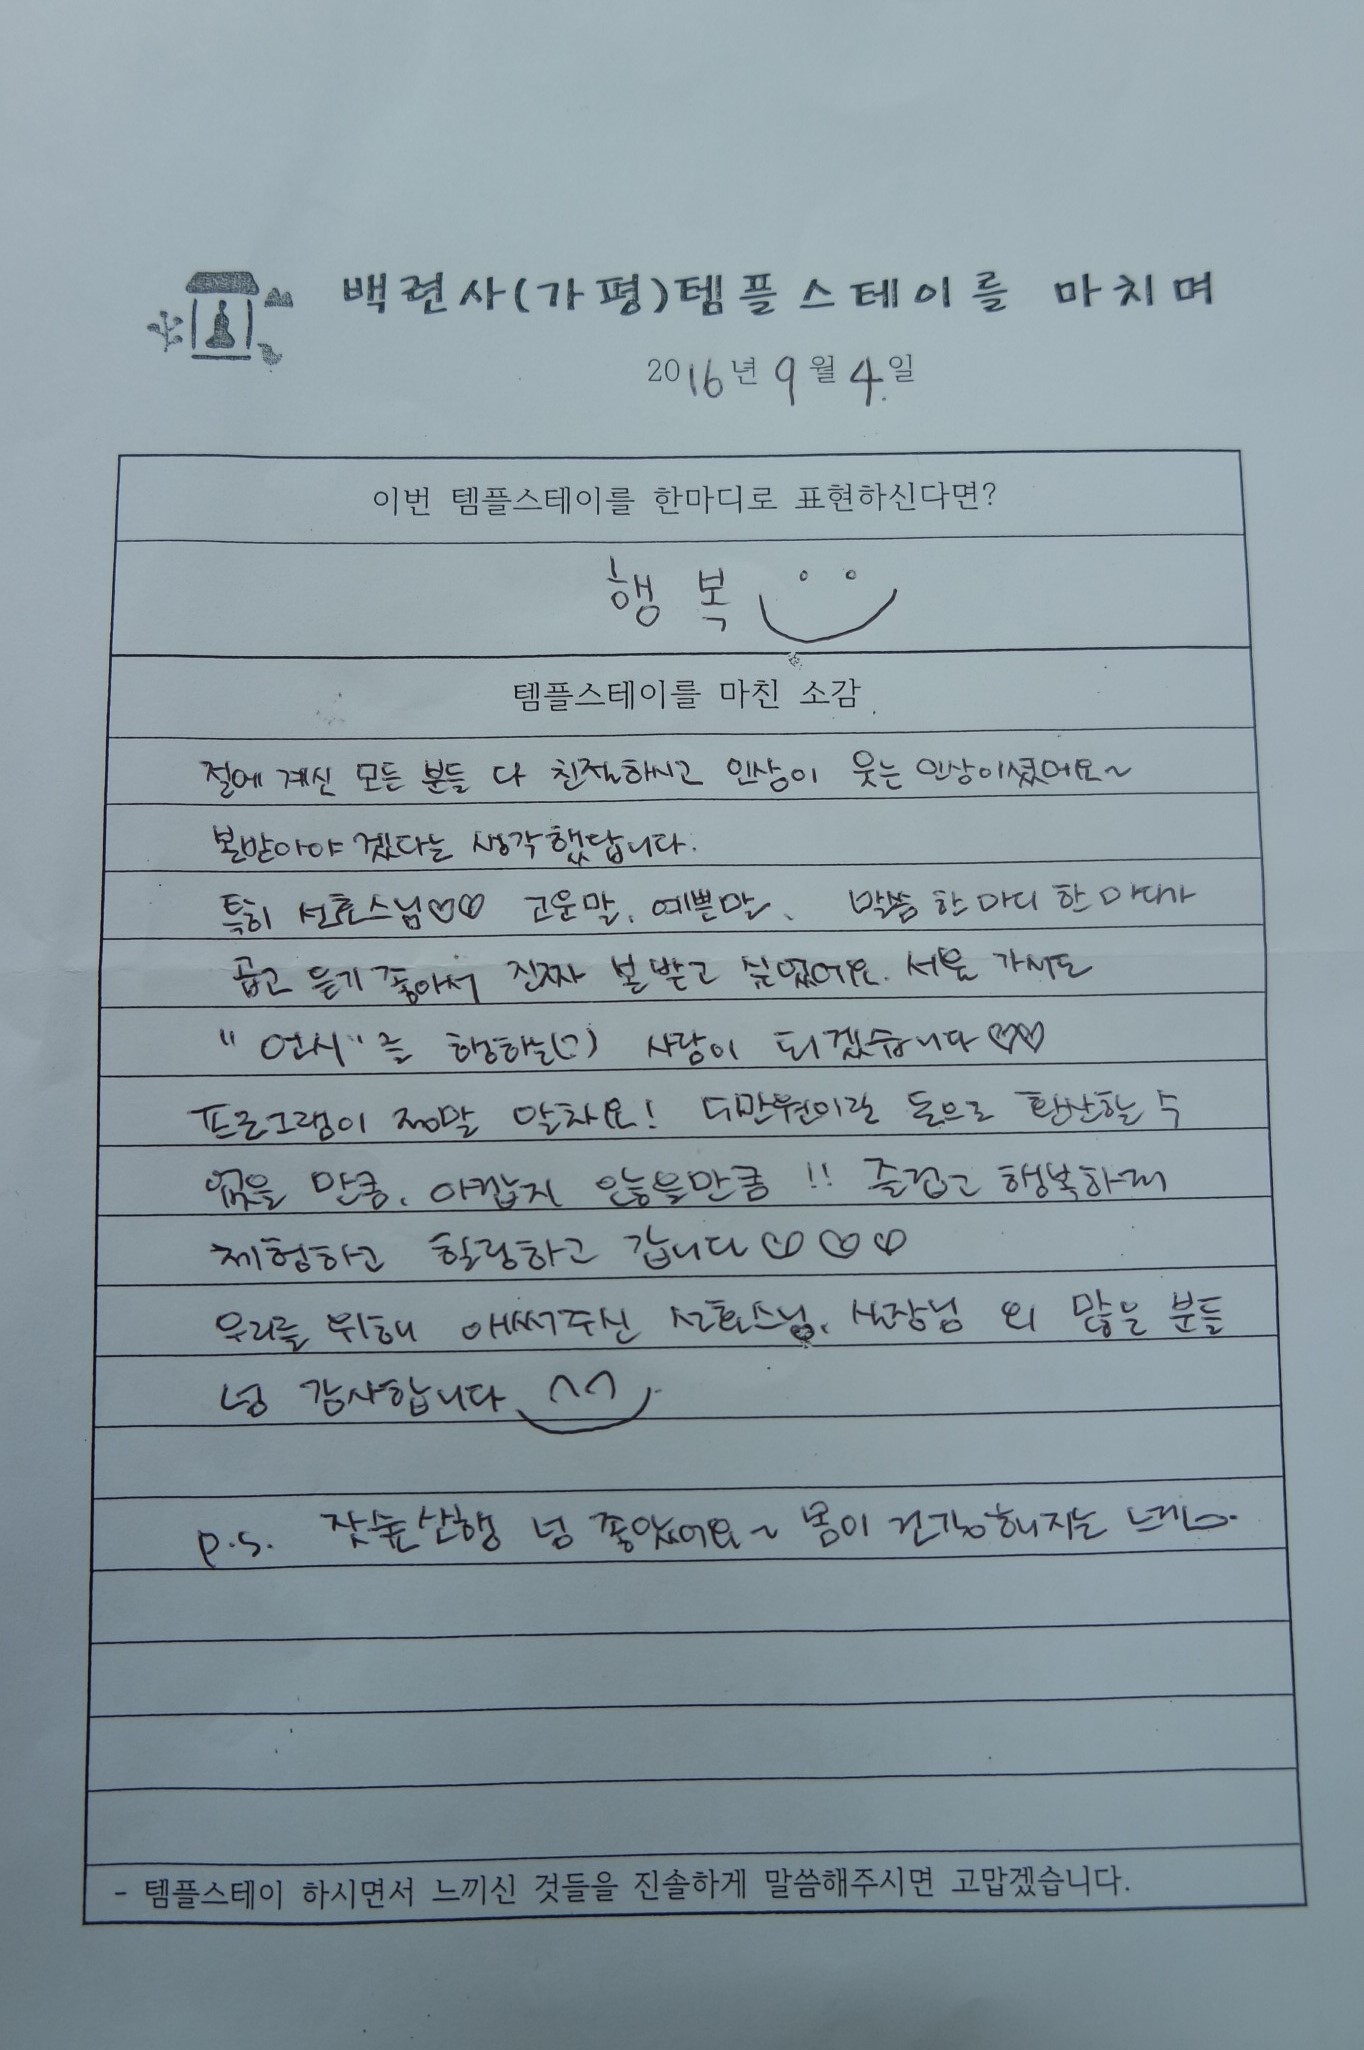 백련사(가평)템플스테이를 마치며
2016년 9월 4.일
이번 템플스테이를 한마디로 표현하신다면?
행복
템플스테이를 마친 소감
절에 계신 모든 분들 다 친절하시고 인상이 웃는 인상이셨어요~
본받아야 겠다는 생각했답니다.
특히 선효스님♡♡ 고운말, 예쁜말, 말씀 한마디 한마디가
곱고 듣기 좋아서 진짜 본받고 싶었어요. 서울 가서도
"언시"를 행하는(?) 사람이 되겠습니다♡♡
프로그램이 정말 알차요! 더만원이란 돈으로 환산할 수
없을 만큼, 아깝지 않을만큼!! 즐겁고 행복하게
체험하고 힐링하고 갑니다♡♡♡
우리를 위해 애써주신 선효스님, 외 많은 분들
넘 감사합니다 ^^
p.s. 잣숲산행 넘 좋았어요~ 몸이 건강해지는 느낌
- 템플스테이 하시면서 느끼신 것들을 진솔하게 말씀해주시면 고맙겠습니다.